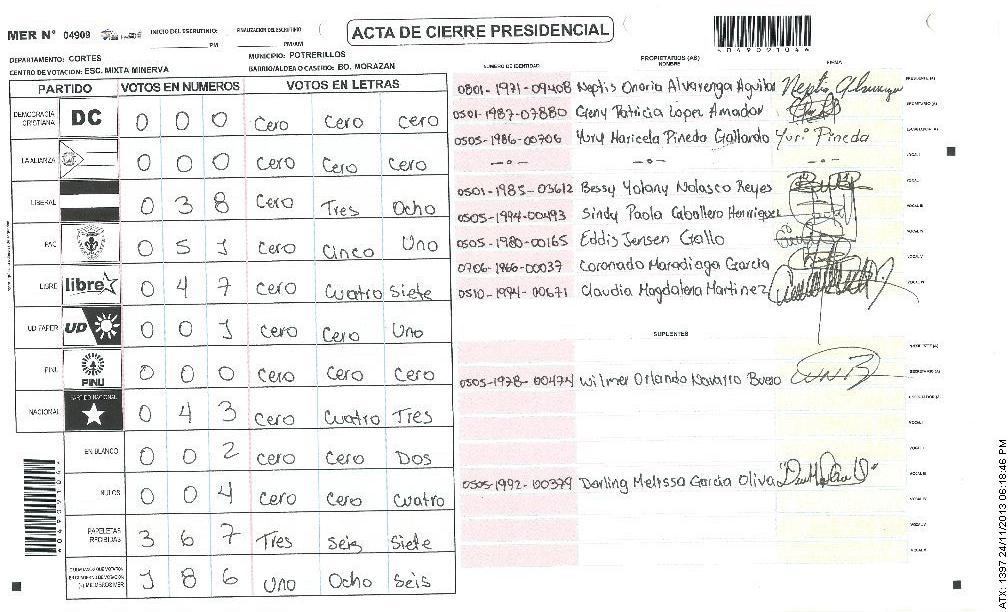 MER N° 04909
INICIO DEL ESCRUTINIO: PM
FINALIZACION DEL ESCRUTINIO PM/AM
ACTA DE CIERRE PRESIDENCIAL
4049091044
DEPARTAMENTO: CORTES
MUNICIPIO: POTRERILLOS
CENTRO DE VOTACION: ESC. MIXTA MINERVA
BARRIO/ALDEA O CASERIO: BO. MORAZAN
PARTIDO VOTOS EN NUMEROS VOTOS EN LETRAS
DEMOCRACIA CRISTIANA DC 0 0 0 Cero Cero cero
LA ALIANZA 0 0 0 Cero Cero Cero
LIBERAL 0 3 8 Cero Tres Ocho
PAC 0 5 1 Cero Cinco Uno
LIBRE libre 0 4 7 Cero Cuatro Siete
UD FAPER UD 0 0 1 Cero Cero Uno
PINU PINU 0 0 0 Cero Cero Cero
NACIONAL PARTIDO NACIONAL 0 4 3 Cero Cuatro Tres
EN BLANCO 0 0 2 Cero Cero Dos
NULOS 0 0 4 Cero Cero Cuatro
PAPELETAS RECIBIDAS 3 6 7 Tres Seis Siete
1 8 6 Uno Ocho Seis
PROPIETARIOS (AS)
NUMERO DE IDENTIDAD NOMBRE FIRMA
0801-1971-09408 Neptis Onoria Alvarenga Aguilar
0501-1987-07880 Geny Patricia Lopez Amador
0505-1986-00706 Yury Maricela Pineda Gallardo Yuri Pineda
—o— —o— —o—
0501-1985-03612 Bessy Yolany Nolasco Reyes
0505-1994-00493 Sindy Paola Caballero Henriquez
0505-1980-00165 Eddis Jensen Gallo
0706-1966-00037 Coronado Maradiaga Garcia
0510-1994-00671 Claudia Magdalena Martinez
SUPLENTES
0505-1978-00474 Wilmer Orlando Navarro Bueso
0505-1992-00379 Darling Melissa Garcia Oliva
ATX: 1397 24/11/2013 06:18:46 PM